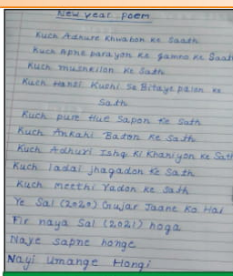 New year poem
Kuch Adhure Khwabon Ke Saath
Kuch Apne parayon Ke Gamno Ke Saath
Kuch mushkilon Ke Sath
Kuch Hansi Kushi Se Bitaye palon Ke
Sath
Kuch pure Hue Sapon Ke Sath
Kuch Ankahi Baton Ke Sath
Kuch Adhuri Ishq Ki Khaniyon Ke Sath
Kuch ladai jhagadon Ke Sath
Kuch meethi Yadon Ke Sath
Ye Sal (2020) Gujar Jaane Ko Hai
Fir naya Sal (2021) hoga
Naye sapne honge
Nayi Umange Hongi